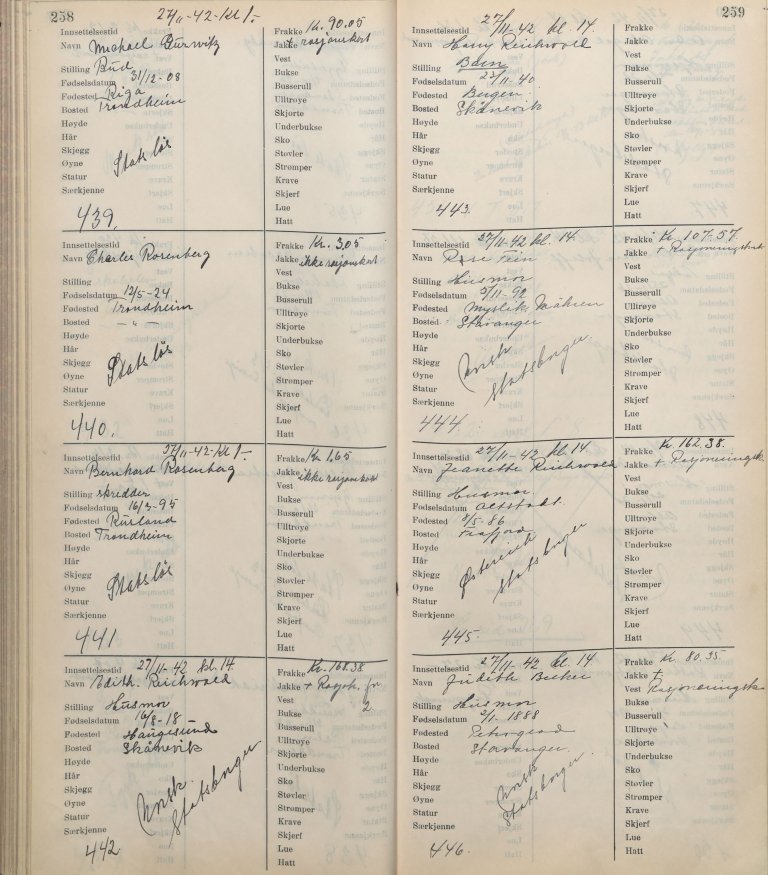 258
27/11-42-kl 1.-
Innsettelsestid
Navn Michael Gurwitz
Stilling Bud
Fødselsdatum 31/12-08
Fødested Riga
Bosted Trondheim
Høyde
Hår
Skjegg
Øyne
Statur
Særkjenne
Statsløs
439.
Frakke Kr. 90.05
Jakke + rasjonskort
Vest
Bukse
Busserull
Ulltrøye
Skjorte
Underbukse
Sko
Støvler
Strømper
Krave
Skjerf
Lue
Hatt
Innsettelsestid
Navn Charles Rosenberg
Stilling
Fødselsdatum 12/5-24
Fødested Trondheim
Bosted - " -
Høyde
Hår
Skjegg
Øyne
Statur
Særkjenne
Statsløs
440.
Frakke Kr. 3,05
Jakke ikke rasjonskort
Vest
Bukse
Busserull
Ulltrøye
Skjorte
Underbukse
Sko
Støvler
Strømper
Krave
Skjerf
Lue
Hatt
Innsettelsestid 27/11-42-kl 1.-
Navn Bernhard Rosenberg
Stilling skredder
Fødselsdatum 16/3-95
Fødested Rusland
Bosted Trondheim
Høyde
Hår
Skjegg
Øyne
Statur
Særkjenne
Statsløs
441.
Frakke Kr 1,65
Jakke ikke rasjonskort
Vest
Bukse
Busserull
Ulltrøye
Skjorte
Underbukse
Sko
Støvler
Strømper
Krave
Skjerf
Lue
Hatt
Innsettelsestid 27/11-42 kl. 14.
Navn Edith. Reichwald
Stilling Husmor
Fødselsdatum 16/8-18
Fødested Haugesund
Bosted Skånevik
Høyde
Hår
Skjegg
Øyne
Statur
Særkjenne
Norsk Statsborger
442
Frakke Kr. 168.38
Jakke + Rasjk. for
Vest 2.
Bukse
Busserull
Ulltrøye
Skjorte
Underbukse
Sko
Støvler
Strømper
Krave
Skjerf
Lue
Hatt
259
Innsettelsestid 27/11-42 kl. 14.
Navn Harry Reichwald
Stilling Barn
Fødselsdatum 27/11-40
Fødested Bergen
Bosted Skånevik
Høyde
Hår
Skjegg
Øyne
Statur
Særkjenne
443.
Frakke
Jakke
Vest
Bukse
Busserull
Ulltrøye
Skjorte
Underbukse
Sko
Støvler
Strømper
Krave
Skjerf
Lue
Hatt
Innsettelsestid 27/11-42 kl. 14.
Navn Rosa Fein
Stilling Husmor
Fødselsdatum 5/11-92
Fødested Myslik. Mähren
Bosted Stavanger
Høyde
Hår
Skjegg
Øyne
Statur
Særkjenne
Norsk Statsborger.
444.
Frakke Kr. 107-57.
Jakke + Rasjoneringskort
Vest
Bukse
Busserull
Ulltrøye
Skjorte
Underbukse
Sko
Støvler
Strømper
Krave
Skjerf
Lue
Hatt
Innsettelsestid 27/11-42 kl. 14
Navn Jeanette Reichwald
Stilling Husmor.
Fødselsdatum Altstadt
Fødested 8/5-86
Bosted
Høyde
Hår
Skjegg
Øyne
Statur
Særkjenne
Østerrisk Statsborger
445.
Frakke Kr. 162.38.
Jakke + Rasjoneringsk.
Vest
Bukse
Busserull
Ulltrøye
Skjorte
Underbukse
Sko
Støvler
Strømper
Krave
Skjerf
Lue
Hatt
Innsettelsestid 27/11-42 kl. 14
Navn Judith Becker
Stilling Husmor
Fødselsdatum 2/1-1888
Fødested Petrograd
Bosted Stavanger.
Høyde
Hår
Skjegg
Øyne
Statur
Særkjenne
Norsk Statsborger
446.
Frakke Kr. 80.35
Jakke +
Vest Rasjoneringsk
Bukse
Busserull
Ulltrøye
Skjorte
Underbukse
Sko
Støvler
Strømper
Krave
Skjerf
Lue
Hatt